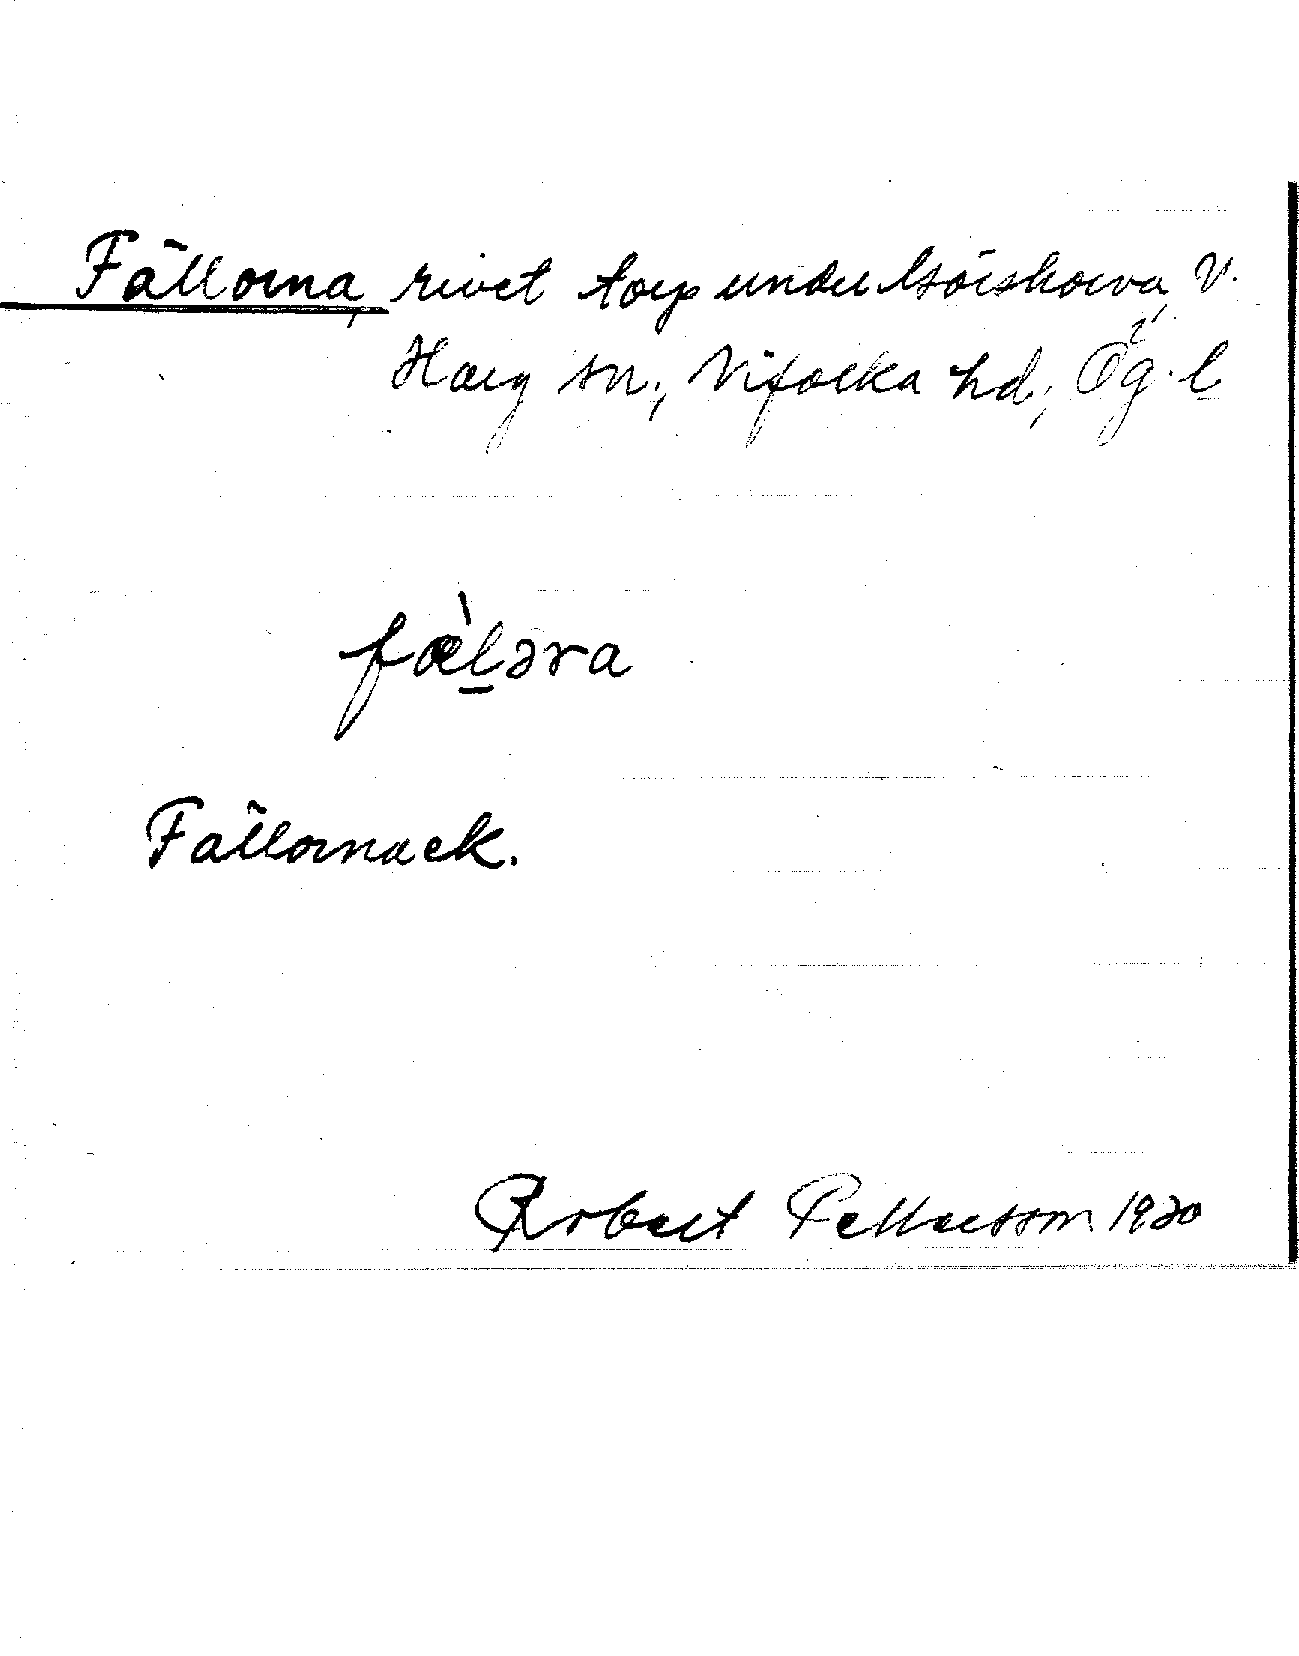 Fällorna, rivet torp under Norskorva, V.
Harg sn., Vifolka hd., Ög. l
fæ̀l̠əra
Fällorna ek.
Robert Pettersson 1930